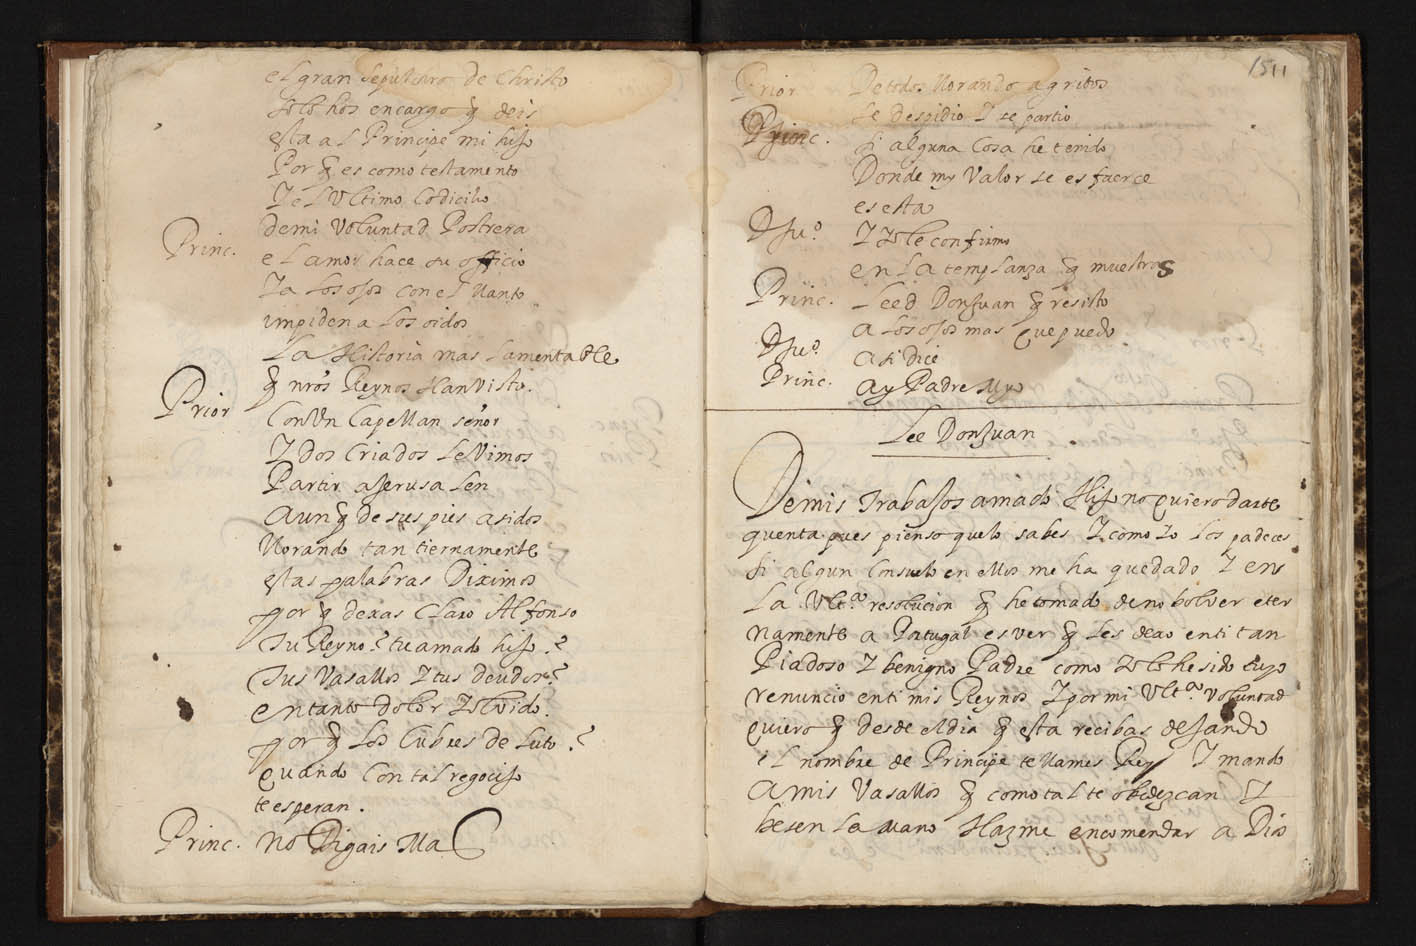 el gran sepulcro de Christo
solo hos encargo q̃ deis
esta al Principe mi hijo
Por q̃ es como testamento
Y el Vltimo Codicilio
de mi Voluntad Postrera
Princ. el amor hace su officio
Ya los ojos con el llanto
impiden a los oidos
La Historia mas lamentable
q̃ nr̃os Reynos Han Visto.
Prior Con Vn Capellan señor
Y dos Criados le Vimos
Partir a Jerusalen
aunq̃ de sus pies asidos
llorando tan tiernamente
estas palabras Diximos
por q̃ dexas Claro Alfonso
su Reyno? tu amado hijo?
sus Vasallos Y tus deudos?
en tanto dolor Y olvido.
por q̃ los Cubres de luto?
quando Con tal regocijo
te esperan.
Princ. no Digais Ma
1511
Prior De todos llorando a gritos
se despidio Y se partio
Princ. si alguna Cosa he tenido
Donde my Valor se esfuerce
es esta
D Ju.º Y Yo le confirmo
en La templanza q̃ muestras
Princ. Leed Don Juan q̃ resisto
a los ojos mas que puedo
D Ju.º asi dice
Princ. ay Padre Myo
Lee Don Juan
De mis Trabajos amado Hijo no quiero darte
quenta pues pienso que lo sabes Y como Yo los padeces
si algun Consuelo en ellos me ha quedado Y en
La Vlt.ª resolucion q̃ he tomado de no bolver eter
namente a Portugal es ver q̃ les dexo en ti tan
Piadoso Y benigno Padre como Yo lo he sido tuyo
renuncio en ti mis Reynos Y por mi Vlt.ª Voluntad
quiero q̃ desde el dia q̃ esta recibas dejando
el nombre de Principe te llames Rey Y mando
a mis Vasallos q̃ como tal te obedezcan Y
besen La mano Hazme encomendar a Dios